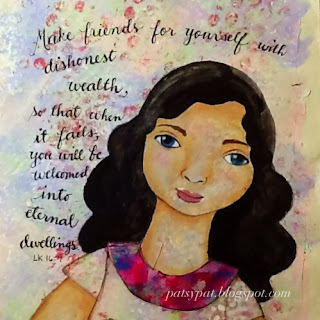 Make friends for yourself with
dishonest
wealth,
so that when
it fails,
you will be
welcomed
into
eternal
dwellings
LK 16:9
patsypat.blogspot.com